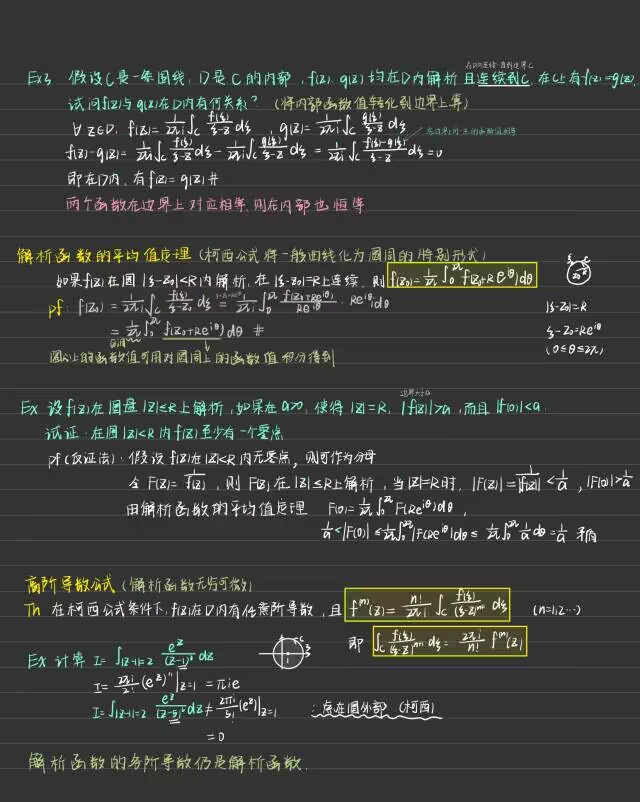 在D内连续·直到边界C
Ex3 假设C是一条围线, D是C的内部, f(z), g(z)均在D内解析且连续到C, 在C上有f(z)=g(z),
试问f(z)与g(z)在D内有何关系? (将内部函数值转化到边界上算)
∀z∈D, f(z)=1/2πi ∫_C f(ξ)/(ξ-z) dξ, g(z)=1/2πi ∫_C g(ξ)/(ξ-z) dξ
f(z)-g(z)=1/2πi ∫_C f(ξ)/(ξ-z) dξ - 1/2πi ∫_C g(ξ)/(ξ-z) dξ = 1/2πi ∫_C (f(ξ)-g(ξ))/(ξ-z) dξ=0
即在D内, 有f(z)=g(z) #
两个函数在边界上对应相等, 则在内部也恒等
解析函数的平均值定理 (柯西公式将一般曲线化为圆周的特别形式)
如果f(z)在圆 |ξ-z₀|<R内解析, 在|ξ-z₀|=R上连续, 则 f(z₀)=1/2π ∫₀^2π f(z₀+Re^iθ)dθ
pf: f(z₀)=1/2πi ∫_C f(ξ)/(ξ-z₀) dξ = 1/2πi ∫₀^2π f(z₀+Re^iθ)/Re^iθ · Re^iθ i dθ
|ξ-z₀|=R
= 1/2π ∫₀^2π f(z₀+Re^iθ)dθ #
ξ-z₀=Re^iθ
(0≤θ≤2π)
圆心的函数值可用对圆周上的函数值积分得到
边界大于a
Ex 设f(z)在圆盘|z|≤R上解析, 如果在a>0, 使得|z|=R, |f(z)|>a, 而且|f(0)|<a.
试证: 在圆|z|<R内f(z)至少有一个零点
pf(反证法): 假设f(z)在|z|<R内无零点, 则可作为分母
令 F(z)=1/f(z), 则F(z)在|z|≤R上解析, 当|z|=R时, |F(z)|=1/|f(z)|<1/a, |F(0)|>1/a
由解析函数的平均值定理 F(0)=1/2π ∫₀^2π F(Re^iθ)dθ,
1/a<|F(0)|≤1/2π ∫₀^2π |F(Re^iθ)|dθ≤1/2π ∫₀^2π 1/a dθ=1/a 矛盾
高阶导数公式 (解析函数无穷可微)
Th 在柯西公式条件下, f(z)在D内有任意阶导数, 且 f^(n)(z)=n!/2πi ∫_C f(ξ)/(ξ-z)^(n+1) dξ (n=1,2…)
即 ∫_C f(ξ)/(ξ-z)^(n+1) dξ=2πi/n! f^(n)(z)
Ex 计算 I=∫_|z-1|=2 e^z/(z-1)³ dz
I=2πi/2! (e^z)''|z=1 =πie
I=∫_|z-1|=2 e^z/(z-5)⁶ dz≠2πi/5! (e^z)|z=1 ∵点在圆外部 (柯西)
=0
解析函数的各阶导数仍是解析函数.